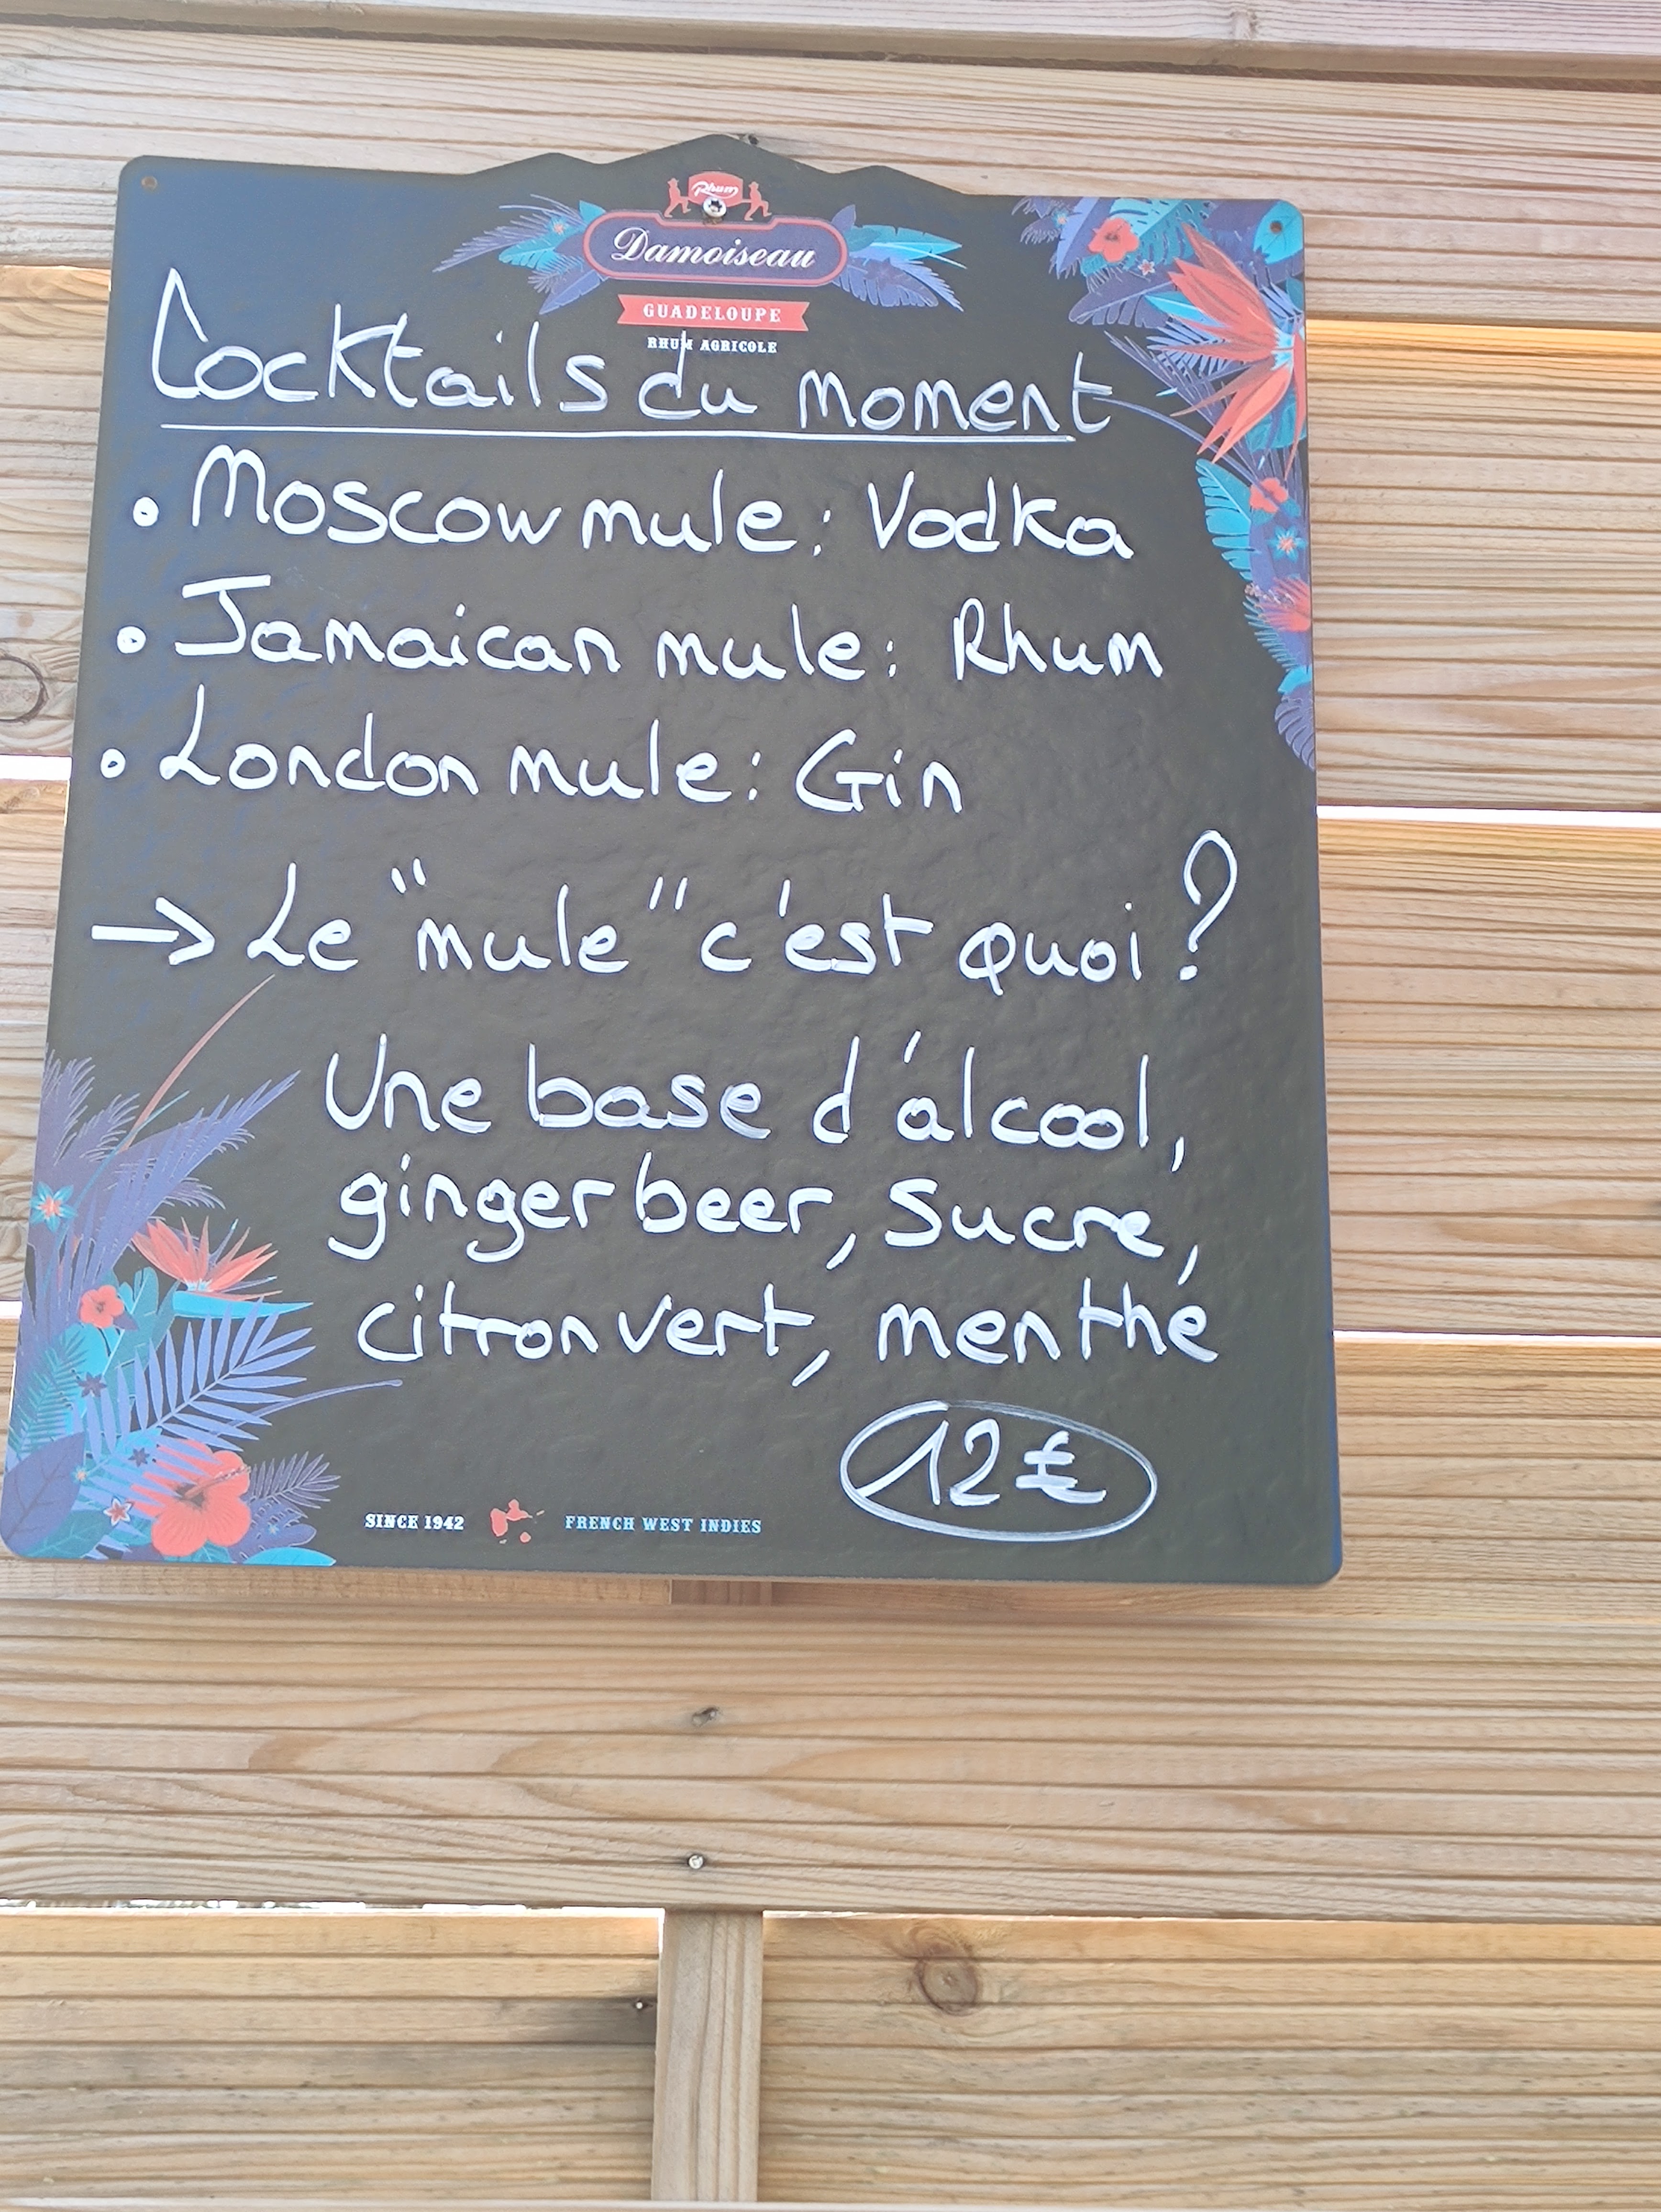 Rhum
Damoiseau
GUADELOUPE
RHUM AGRICOLE
Cocktails du moment
• Moscow mule : Vodka
• Jamaican mule : Rhum
• London mule : Gin
→ Le "mule" c'est quoi ?
Une base d'alcool,
ginger beer, sucre,
citron vert, menthe
12€
SINCE 1942 FRENCH WEST INDIES